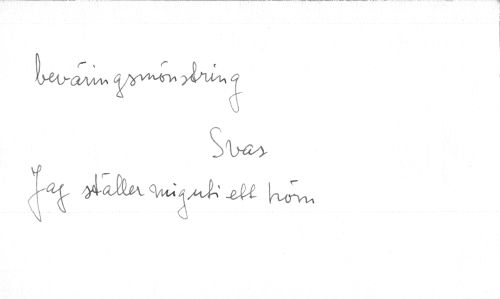 beväringsmönstring
Svar
Jag ställer mig uti ett hörn